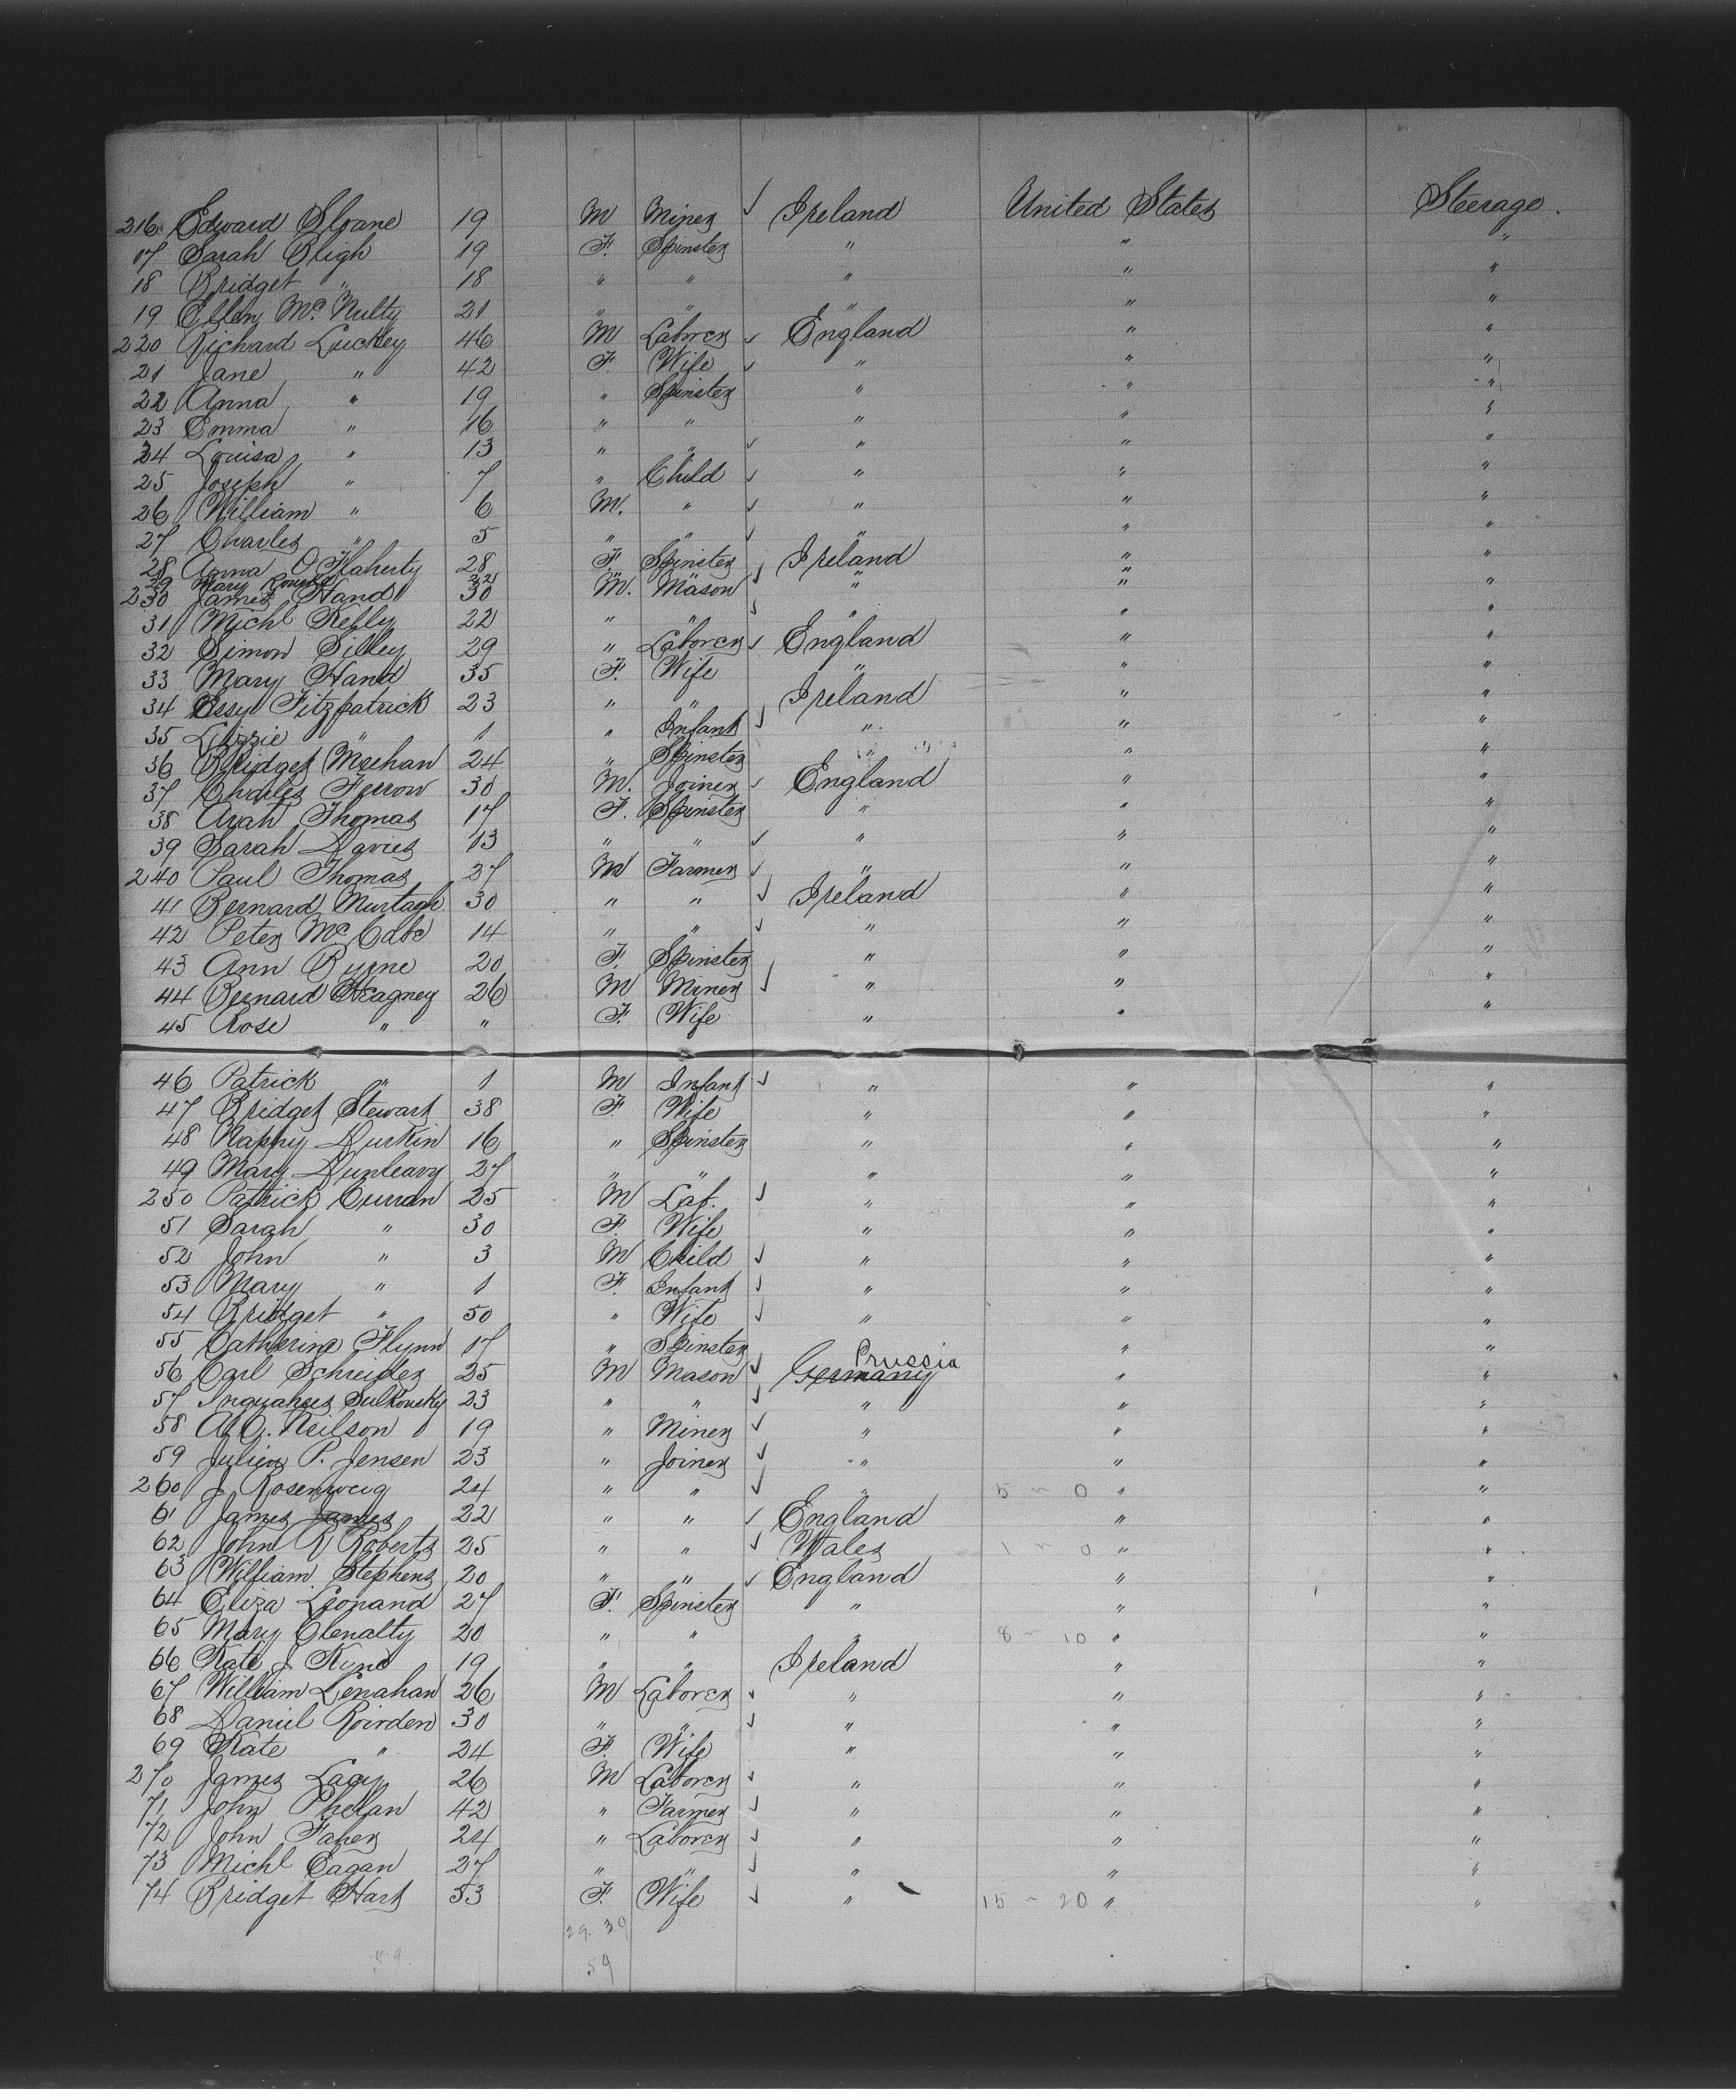 216 Edward Sloane 19 M Miner ✓ Ireland United States Steerage.
17 Sarah Bligh 19 F. Spinster " " "
18 Bridget " 18 " " " " "
19 Ellen Mc Nulty 21 " " " " "
220 Richard Luckley 46 M Laborer ✓ England " "
21 Jane " 42 F. Wife ✓ " " "
22 Anna " 19 " Spinster " " "
23 Emma " 16 " " " " "
24 Louisa " 13 " " ✓ " " "
25 Joseph " 7 " Child ✓ " " "
26 William " 6 M. " ✓ " " "
27 Charles " 5 " " ✓ " " "
28 Anna O'Flaherty 28 F. Spinster Ireland " "
29 Mary Rourke 22 " " " " "
230 James Hand 30 M. Mason ✓ " " "
31 Michl Kelly 22 " " ✓ " " "
32 Simon Silley 29 " Laborer ✓ England " "
33 Mary Hand 35 F. Wife " " "
34 Essy Fitzpatrick 23 " " Ireland " "
35 Lizzie " 1 " Infant ✓ " " "
36 Bridget Meehan 24 " Spinster " " "
37 Charles Ferrow 30 M. Joiner ✓ England " "
38 Thomas 17 F. Spinster " " "
39 Sarah Davies 13 " " ✓ " " "
240 Paul Thomas 27 M Farmer ✓ " " "
41 Bernard Murtagh 30 " " ✓ Ireland " "
42 Peter Mc Cabe 14 " " ✓ " " "
43 Ann Byrne 20 F. Spinster " " "
44 Bernard Heagney 26 M Miner ✓ " " "
45 Rose " " F. Wife " " "
46 Patrick " 1 M Infant ✓ " " "
47 Bridget Stewart 38 F. Wife " " "
48 Nappy Durkin 16 " Spinster " " "
49 Mary Dunleavy 27 " " " " "
250 Patrick Curran 25 M Lab. ✓ " " "
51 Sarah " 30 F. Wife " " "
52 John " 3 M Child ✓ " " "
53 Mary " 1 F. Infant ✓ " " "
54 Bridget " 50 " Wife ✓ " " "
55 Catherine Flynn 17 " Spinster " " "
56 Carl Schreider 25 M Mason ✓ Germany Prussia " "
57 Sulkowsky 23 " " ✓ " " "
58 A.C. Neilson 19 " Miner ✓ " " "
59 Julius P. Jensen 23 " Joiner ✓ " " "
260 J. Rosenweig 24 " " ✓ " 5 ~ 0 " "
61 James James 22 " " ✓ England " "
62 John R Roberts 25 " " ✓ Wales 1 ~ 0 " "
63 William Stephens 20 " " ✓ England " "
64 Eliza Leonard 27 F. Spinster " " "
65 Mary Clenalty 20 " " " 8 ~ 10 " "
66 Kate J. Kyne 19 " " Ireland " "
67 William Lenahan 26 M Laborer ✓ " " "
68 Daniel Roirden 30 " " ✓ " " "
69 Kate " 24 F. Wife " " "
270 James Lacy 26 M Laborer ✓ " " "
71 John Phelan 42 " Farmer ✓ " " "
72 John Faher 24 " Laborer ✓ " " "
73 Michl Eagan 27 " " ✓ " " "
74 Bridget Hart 53 F. Wife ✓ " 15 ~ 20 " "
29. 30
59